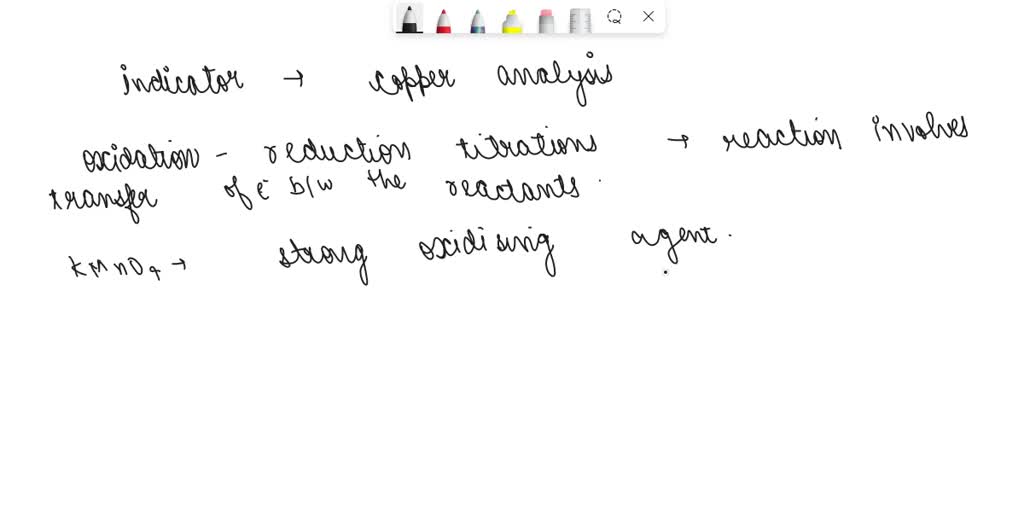 indicator → copper analysis
oxidation - reduction titrations → reaction involves
transfer of e⁻ b/w the reactants.
KMnO4 → strong oxidising agent.